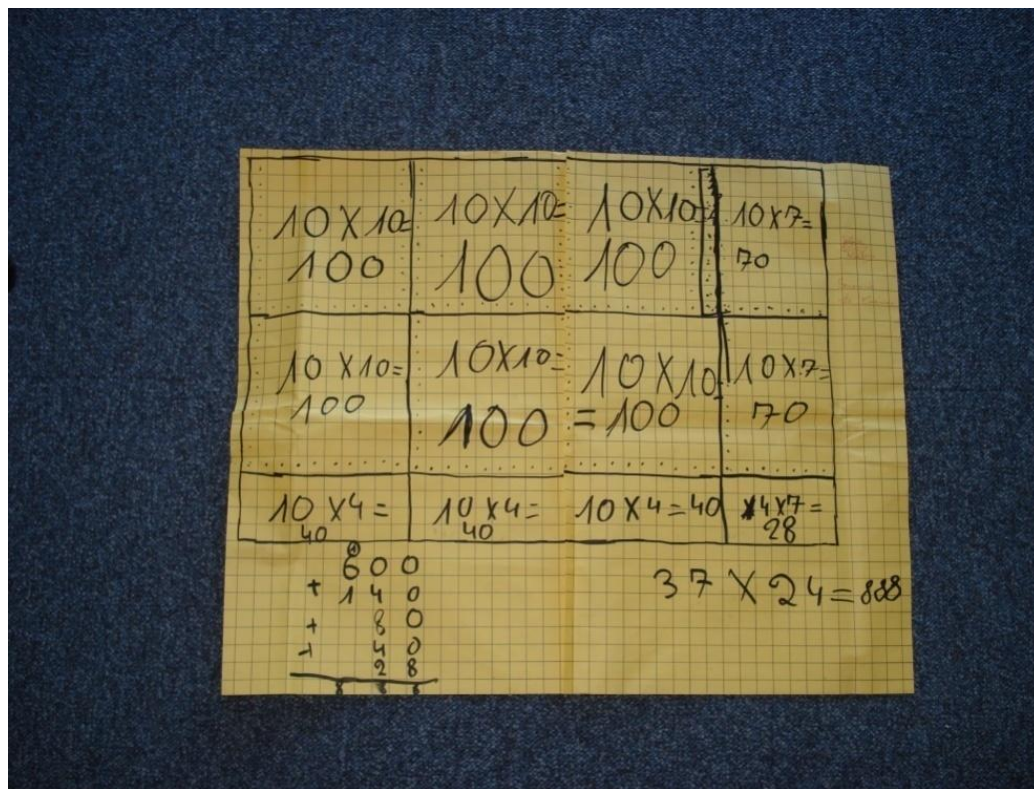 10 X 10=
100
10 X 10=
100
10 X 10=
100
10 x 7=
70
10 X 10=
100
10 X 10=
100
10 X 10
= 100
10 X 7=
70
10 X 4=
40
10 X 4=
40
10 X 4=40
4 X 7=
28
600
+ 1 4 0
+ 8 0
+ 4 0
2 8
8 8 8
37 X 24=888